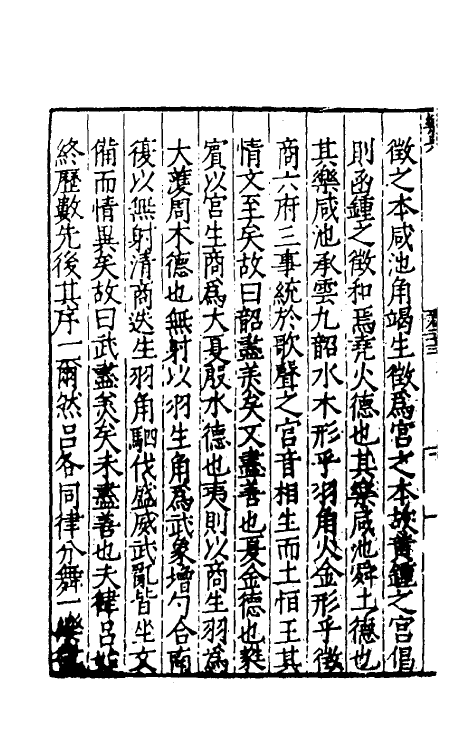 徵之本咸池角竭生徵為宮之本故黃鍾之宮倡
則函鍾之徵和焉堯火德也其樂咸池舜土德也
其樂咸池承雲九韶水木形乎羽角火金形乎徵
商六府三事統於歌聲之宮音相生而土恒王其
情文至矣故曰韶盡美矣又盡善也夏金德也蕤
賓以宮生商為大夏殷水德也夷則以商生羽為
大濩周木德也無射以羽生角為武象增勺合南
復以無射清商迭生羽角駟伐盛威武亂皆坐文
備而情異矣故曰武盡美矣未盡善也夫律呂始
終歷數先後其序一爾然呂各同律分舞一樂